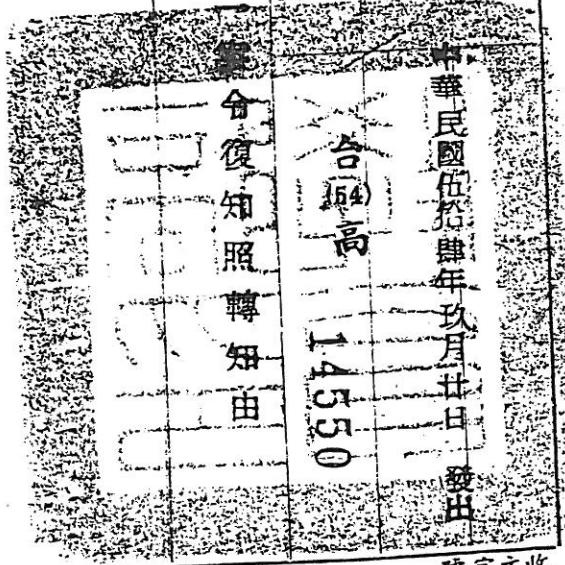 中華民國伍拾肆年玖月廿日 發出
台(54)高 14550
案令復知照轉知由
字文收